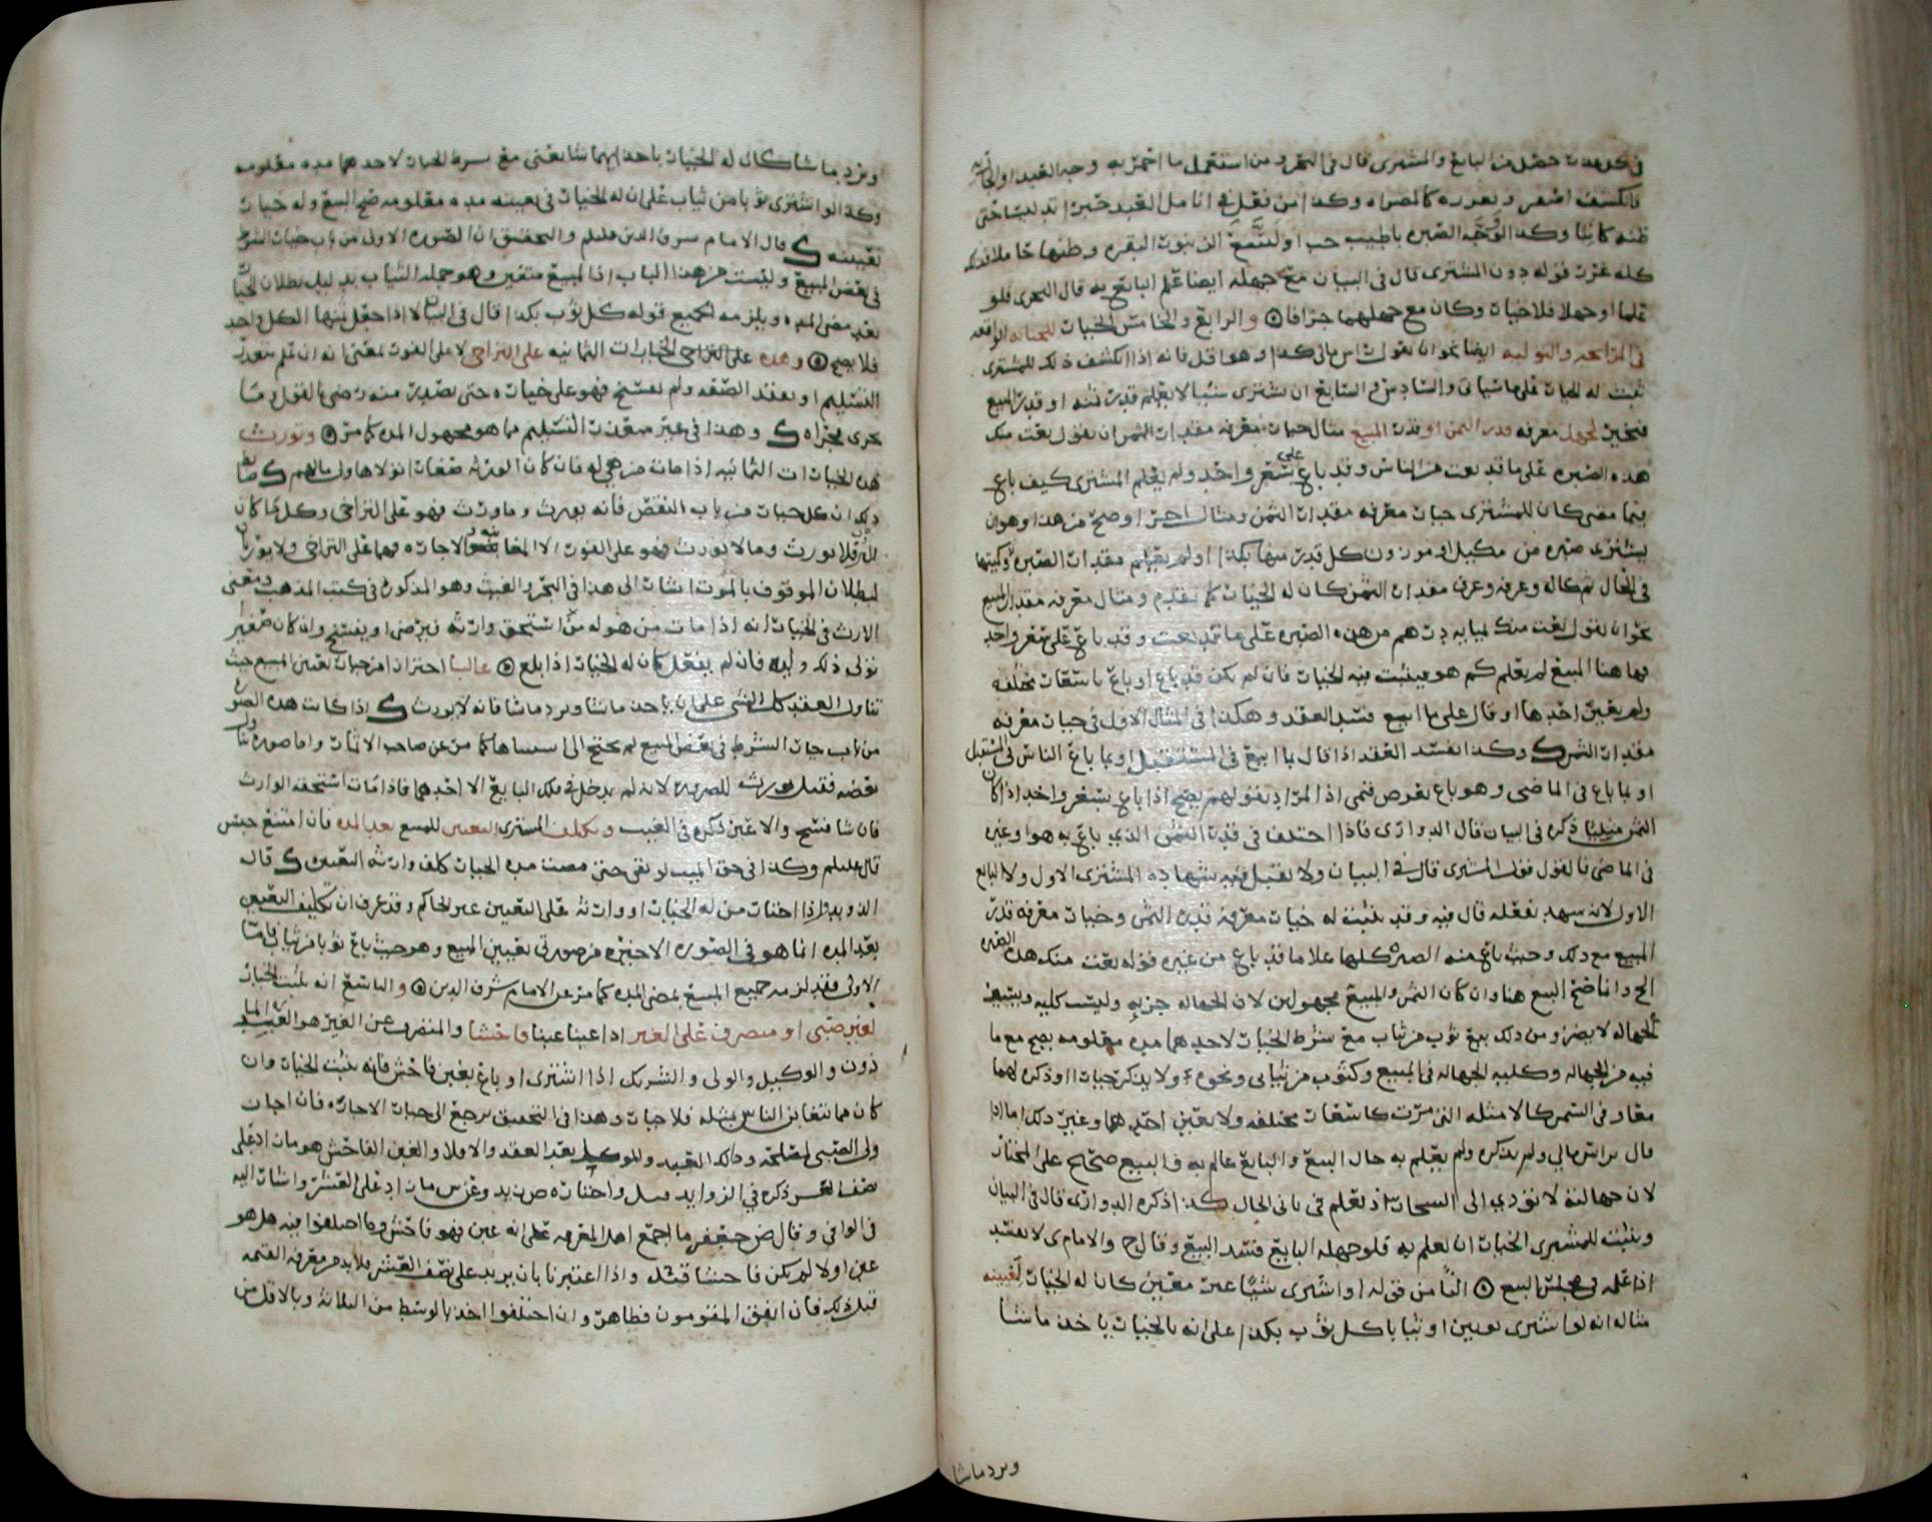 في كل حصل من البايع والمشترى قال في البحر و من استعمل ما اخمر به وجه العبد او الجاريه
فانكشف اصفر و نعرره كالمصراه وكذا من نقل في انامل العبد حبرا
ظنه كاتبا وكذا لو وجه الصبره باطيب حب او لبن البقره وظنها حاملا
كله غرر قوله دون المشترى قال في البيان مع جهله ايضا علم البايع به قال البحرى فلو
علما او جهلا فلا خيار وكان مع جهلهما جزافا والرابع والخامس الخيار للخيانه الواقعه
في المرابحه والتوليه ايضا نحو ان يقول راس مالى كذا وهو اقل فانه اذا انكشف ذلك للمشترى
ثبت له الخيار على ما سياتى والسادس والسابع ان يشترى شيئا لا يعلم قدر ثمنه او قدر المبيع
فيخير لجهل معرفه قدر الثمن او قدر المبيع مثال خيار معرفه مقدار الثمن ان يقول بعت منك
هذه الصبره على ما قد بعت من الناس وقد باع على سعر واحد ولم يعلم المشترى كيف باع
فيما مضى كان للمشترى خيار معرفه مقدار الثمن ومثال اخر اوضح من هذا وهو ان
يشترى صبره من مكيل او موزون كل قدر منها بكذا او لم يعلم مقدار الصبره وكميتها
في الحال ثم كاله وعرفه وعرف مقدار الثمن كان له الخيار كما تقدم ومثال معرفه مقدار المبيع
نحو ان يقول بعت منك بمايه درهم من هذه الصبره على ما قد بعت وقد باع على سعر واحد
فها هنا المبيع لم يعلم كم هو فيثبت فيه الخيار فان لم يكن قد باع او باع باسعار مختلفه
ولم يعين احدها او قال على ما ابيع فسد العقد وهكذا في المثال الاول في خيار معرفه
مقدار الثمن وكذا يفسد العقد اذا قال بما ابيع في المستقبل او بما باع الناس في المستقبل
او بما باع في الماضى وهو باع بعرض فمتى اذا المراد بقولهم يصح اذا باع بسعر واحد اذا كان
الثمن مثليا ذكره في البيان قال الدوارى فاذا اختلف في قدر الثمن الذي باع به هو او غيره
في الماضى فالقول قول المشترى قال في البيان ولا تقبل فيه شهاده المشترى الاول ولا البايع
الاول لانه يشهد بفعله قال فيه وقد يثبت له خيار معرفه قدر الثمن وخيار معرفه قدر
المبيع مع ذلك وحيث باع منه الصبره كلها على ما قد باع من غيره قوله بعت منك هذه الصبره
الخ وانما صح البيع هنا وان كان الثمن والمبيع مجهولين لان الجهاله جزيه وليست كليه ويسير
الجهاله لا يضر ومن ذلك بيع ثوب من ثياب مع شرط الخيار لاحدهما مده معلومه يصح مع ما
فيه من الجهاله وكليه الجهاله في المبيع وكثوب من ثيابى ونحوه ولا يذكر خيار او ذكره لهما
معا و في الثمن كالامثله التى مرت كاسعار مختلفه ولا يعين احدهما وغير ذلك اما اذا
قال براس مالي ولم يذكره ولم يعلم به حال البيع والبايع عالم به فالبيع صحيح على المختار
لان جهالته لا تؤدي الى الشجار اذ تعلم في ثانى الحال كذا ذكره الدوارى قال في البيان
ويثبت للمشترى الخيار ان يعلم به فلو جهله البايع فسد البيع وقال ح والامام ى لا يفسد
اذا علمه في مجلس البيع الثامن قوله او اشترى شيئا غير معين كان له الخيار لتعيينه
مثاله انه لو اشترى ثوبين او ثيابا كل ثوب بكذا على انه بالخيار ياخذ ما شا
ويرد ما شا
ويرد ما شا كان له الخيار ياخذ ايهما شا يعنى مع شرط الخيار لاحدهما مده معلومه
وكذا لو اشترى ثوبا من ثياب على ان له الخيار في تعيينه مده معلومه صح البيع وله خيار
تعيينه قال الامام شرف الدين عليلم والتحقيق ان الصوره الاولى من باب خيار الشرط
في بعض المبيع وليست من هذا الباب اذ المبيع متعين وهو جمله الثياب بدليل بطلان الخيار
بعد مضى المده ويلزمه الجميع قوله كل ثوب بكذا قال في البيان اذا جعل ثمنها الكل واحد
فلا يصح وهذه على التراخى الخيارات الثمانيه على التراخى لا على الفور بمعنى انه ان علم بتعذر
التسليم او بفقد الصفه ولم يفسخ فهو على خياره حتى يصدر منه رضى بالقول وما
جرى مجراه وهذا في غير متعذر التسليم مما هو مجهول المده كما مر وتورث
هذه الخيارات الثمانيه اذا مات من هي له فان كان الورثه صغار تولاها ولى مالهم ضابط
ذلك ان كل خيار من باب النقص فانه يورث وما ورث فهو على التراخى وكل ما كان
للتروى فلا يورث وما لا يورث فهو على الفور الا المغابنه والاجازه فهما على التراخى ولا يورثان
لبطلان الموقوف بالموت اشار الى هذا في البحر والغيث وهو المذكور في كتب المذهب ومعنى
الارث في الخيارات انه اذا مات من هو له من استحق وارثه فيرضى او يفسخ وان كان صغيرا
تولى ذلك وليه فان لم يفعل كان له الخيار اذا بلغ غالبا احتراز من خيار تعيين المبيع حيث
تناول العقد كل الشى على ان ياخذ ما شا ويرد ما شا فانه لا يورث اذا كانت هذه الصوره
من باب خيار الشرط في بعض المبيع لم يحتج الى استثناها كما مر عن صاحب الاثمار واما صوره
بعضه فقيل يورث للضروره لانه لم يدخل في ملك البايع الا احدهما فاذا مات استحقه الوارث
فان شا فسخ والا عين ذكره في الغيث ويكلف المشترى التعيين للمبيع بعد المده فان امتنع حبس
قال عليلم وكذا في حق الميت لو بقى حتى مضت مده الخيار كلف وارثه التعيين قال
الدوارى واذا اختار من له الخيار او وارثه على التعيين عين الحاكم وقد عرف ان تكليف التعيين
بعد المده انما هو في الصوره الاخيره من صورتى تعيين المبيع وهو حيث باع ثوبا من ثياب فاما
الاولى فقد لزمه جميع المبيع بمضى المده كما مر عن الامام شرف الدين والتاسع انه يثبت الخيار
لغبن صبى او متصرف على الغير اذا غبنا غبنا فاحشا والمتصرف عن الغير هو العبد الما
ذون والوكيل والولى والشريك اذا اشترى او باع بغبن فاحش فانه يثبت الخيار وان
كان مما يتغابن الناس بمثله فلا خيار وهذا في التحقيق يرجع الى خيار الاجازه فان اجاز
ولى الصبى لمصلحه ومالك العبد والموكل بعد العقد والا فلا والغبن الفاحش هو ما زاد على
نصف العشر ذكره في الزوايد وقيل واختاره ص زيد وعن س ما زاد على العشر واشار اليه
في الوافي وقال ض جعفر ما اجمع اهل المعرفه على انه غبن فهو فاحش وما اختلفوا فيه هل هو
غبن او لا لم يكن فاحشا قيل واذا اعتبرنا بان يزيد على نصف العشر فلا بد من معرفه القيمه
قبل ذلك فان اتفق المقومون فظاهر وان اختلفوا اخذ بالوسط من الثلاثه وبالاقل من